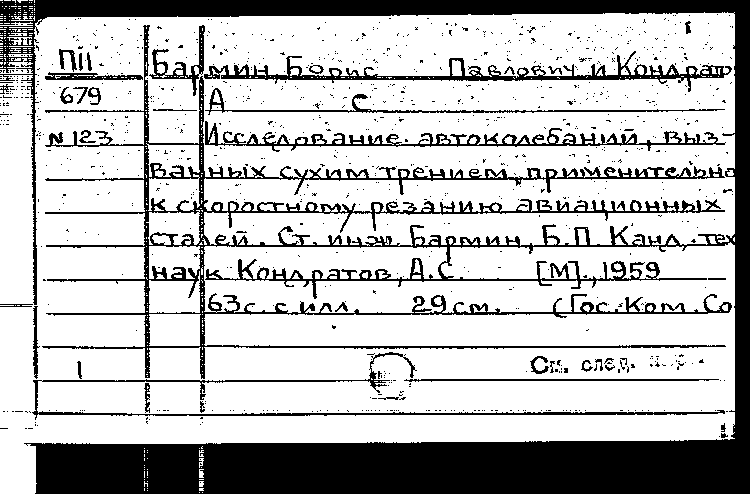 П11 Бармин, Борис Павлович и Кондрат
679 А С
N 123 Исследование автоколебаний, выз-
ванных сухим трением, применительно
к скоростному резанию авиационных
сталей. Ст. инж. Бармин, Б.П. Канд. тех
наук Кондратов, А.С. [М]., 1959
63с. с илл. 29 см. (Гос. Ком. Со
1 См. след.